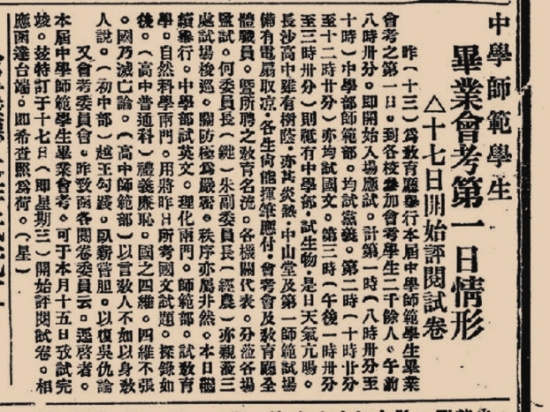 中學師範學生
畢業會考第一日情形
△十七日開始評閱試卷
昨(十三)為敎育廳舉行本屆中學師範學生畢業
會考之第一日。到各校參加會考學生二千餘人。午前
八時卅分。即開始入場應試。計第一時(八時卅分至
十時)中學部師範部。均試黨義。第二時(十時廿分
至十二時廿分)亦均試國文。第三時(午後一時卅分
至三時卅分)則祇有中學部。試生物。是日天氣亢陽。
長沙高中雖有樹蔭。亦甚炎熱。中山堂及第一師範試場
備有電扇取凉。各生尙能揮筆應付。會考會及敎育廳全
體職員。曁所聘之敎育名流。各機關代表。分蒞各場
監試。何委員長(鍵)朱副委員長(經農)亦親蒞三
處試場梭巡。關防極為嚴密。秩序亦屬井然。本日繼
續舉行。中學部試英文。理化兩門。師範部。試敎育
學。自然科學兩門。用將昨日所考國文試題。探錄如
後。(高中普通科)禮義廉恥。國之四維。四維不張
。國乃滅亡論。(高中師範部)以言敎人不如以身敎
人說。(初中部)越王勾踐。臥薪嘗膽。以復吳仇論
又會考委員會。昨致函各閱卷委員云。逕啓者。
本屆中學師範學生畢業會考。可于本月十五日攷試完
竣。茲特訂于十七日(即星期三)開始評閱試卷。相
應函達台端。即希查照為荷。(星)